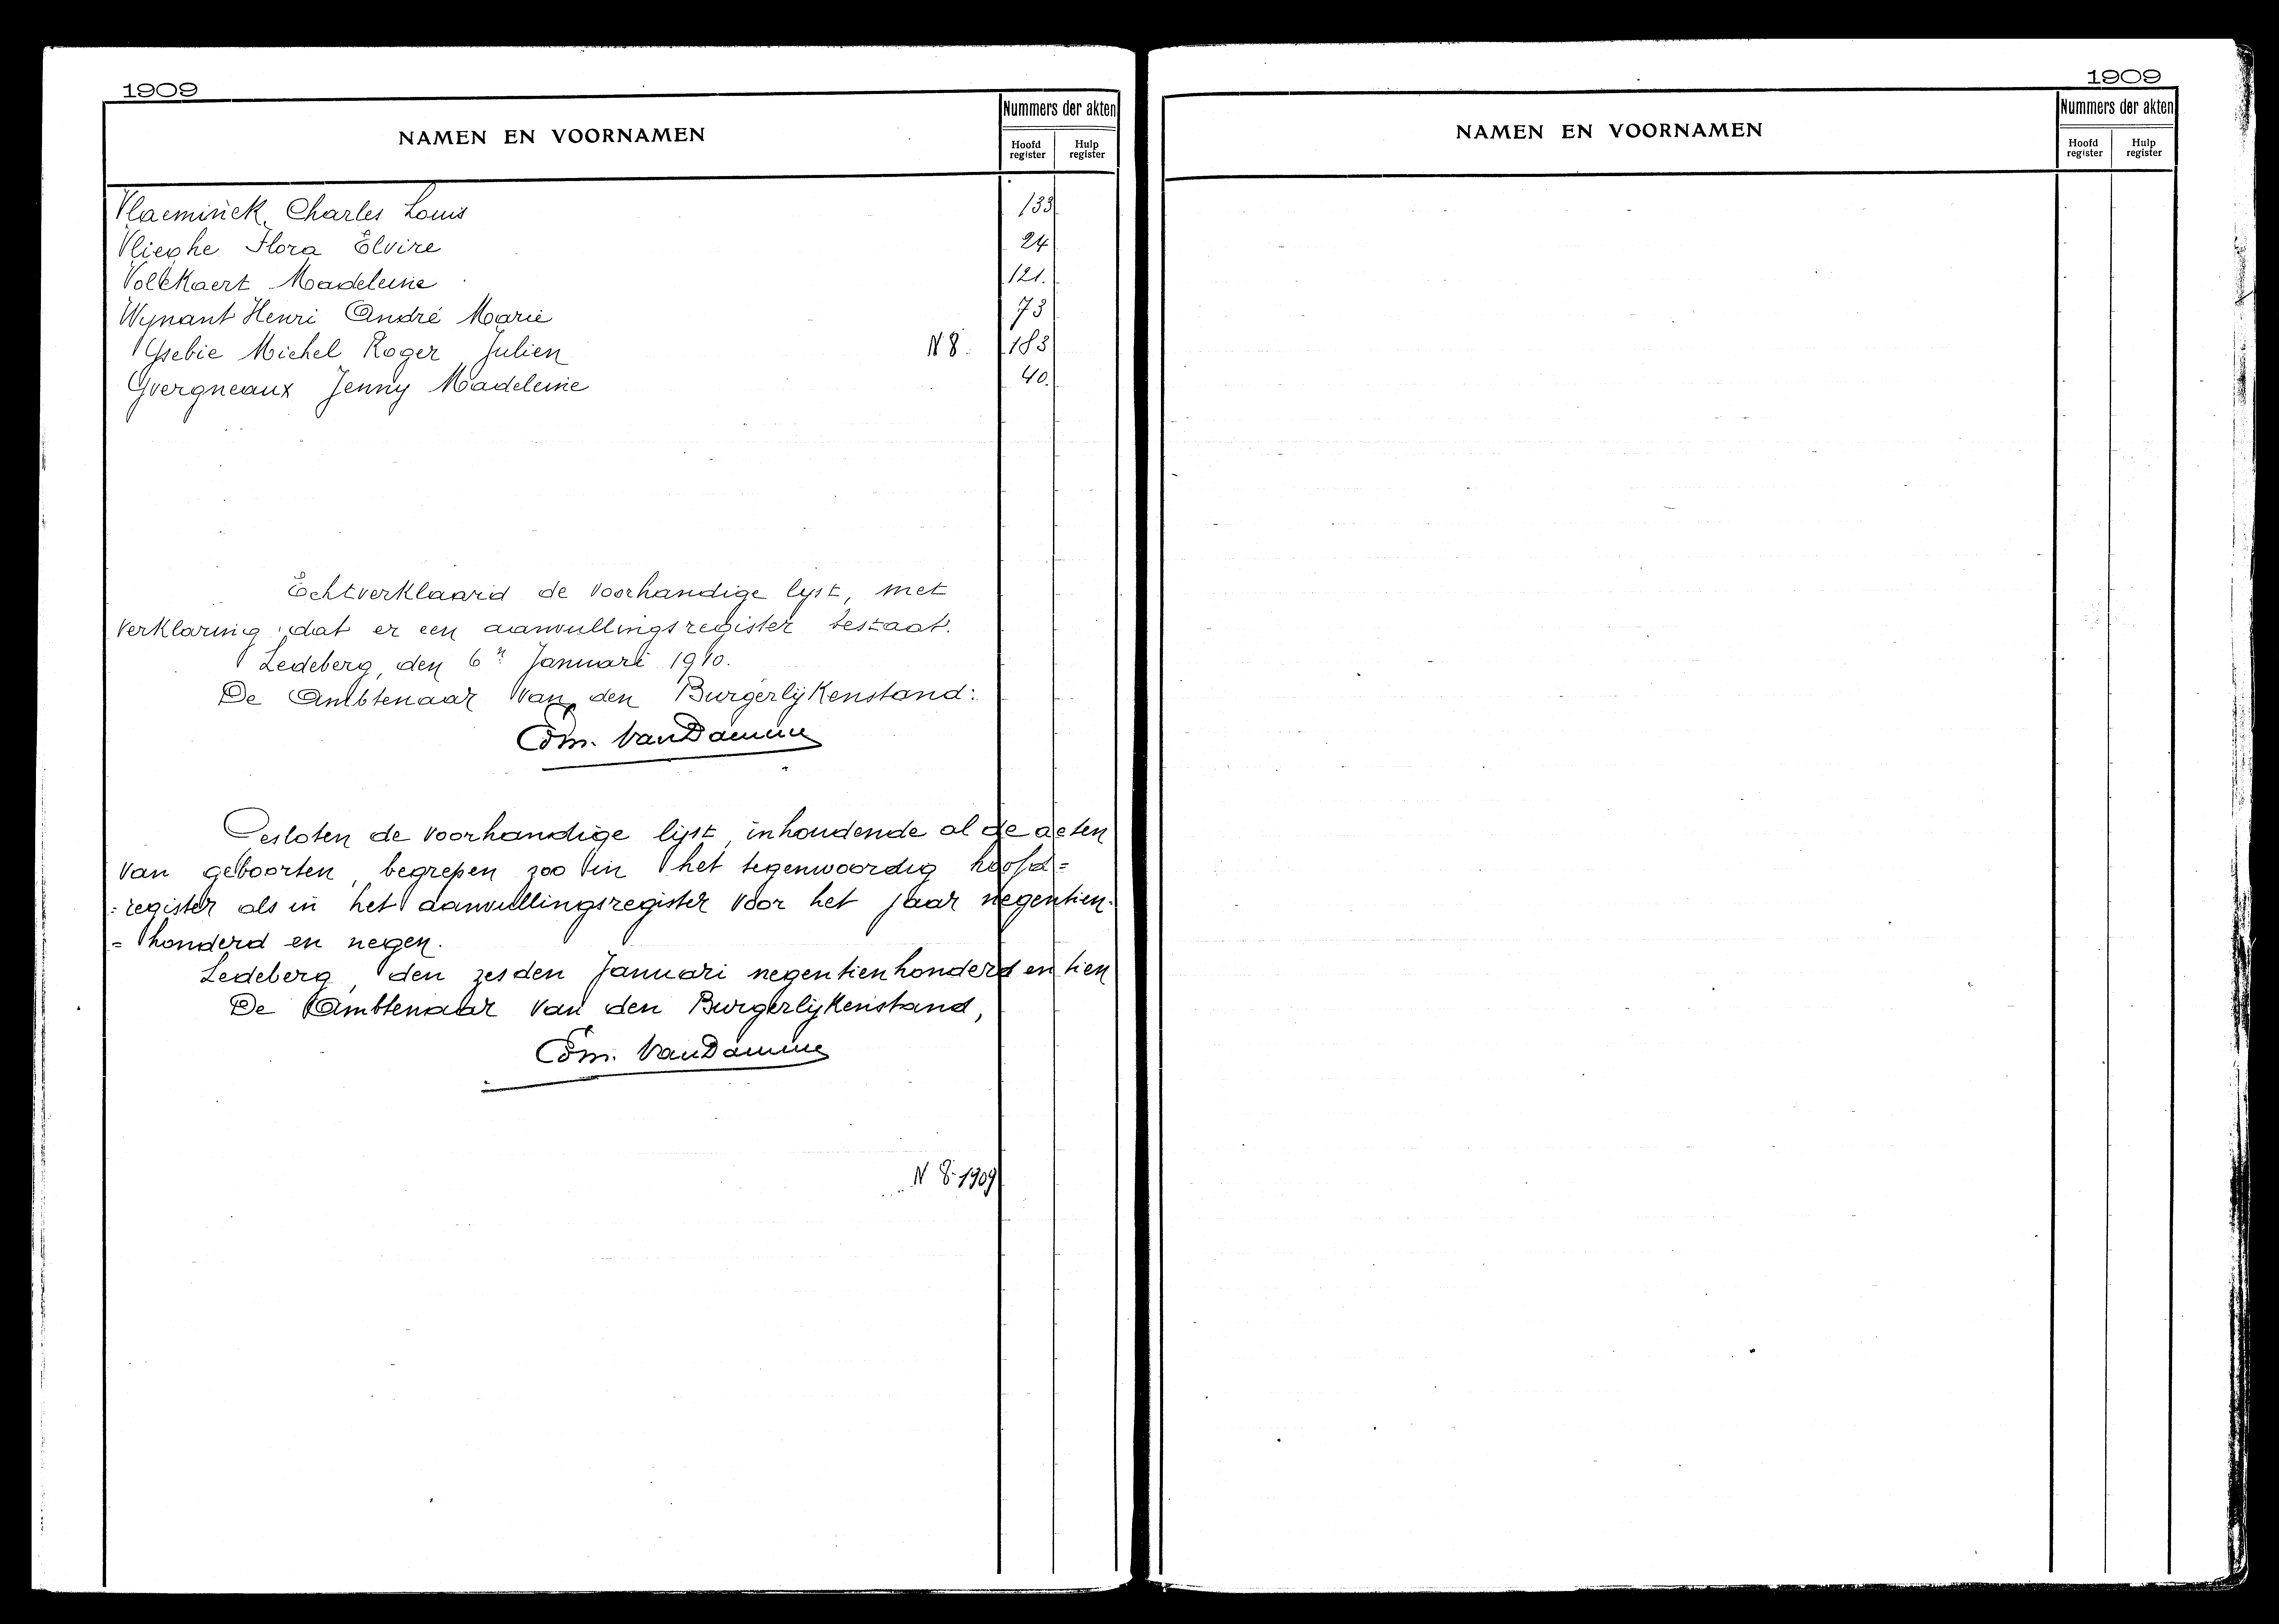 1909
NAMEN EN VOORNAMEN
Nummers der akten
Hoofd register
Hulp register
Vlaeminck Charles Louis 133
Vlieghe Flora Elvire 24
Volckaert Madeleine 121.
Wynant Henri André Marie 73
Ysebie Michel Roger Julien N 8. 183
Yvergneaux Jenny Madeleine 40.
Echtverklaard de voorhandige lyst, met
verklaring dat er een aanvullingsregister bestaat.
Ledeberg, den 6n Januari 1910.
De Ambtenaar van den Burgerlijkenstand:
Edm. VanDamme
Gesloten de voorhandige lijst, inhoudende al de acten
van geboorten, begrepen zoo in het tegenwoordig hoofd=
=register als in het aanvullingsregister voor het jaar negentien-
=honderd en negen.
Ledeberg, den zesden Januari negentienhonderd en tien
De Ambtenaar van den Burgerlijkenstand,
Edm. VanDamme
N 8-1909
1909
NAMEN EN VOORNAMEN
Nummers der akten
Hoofd register
Hulp register